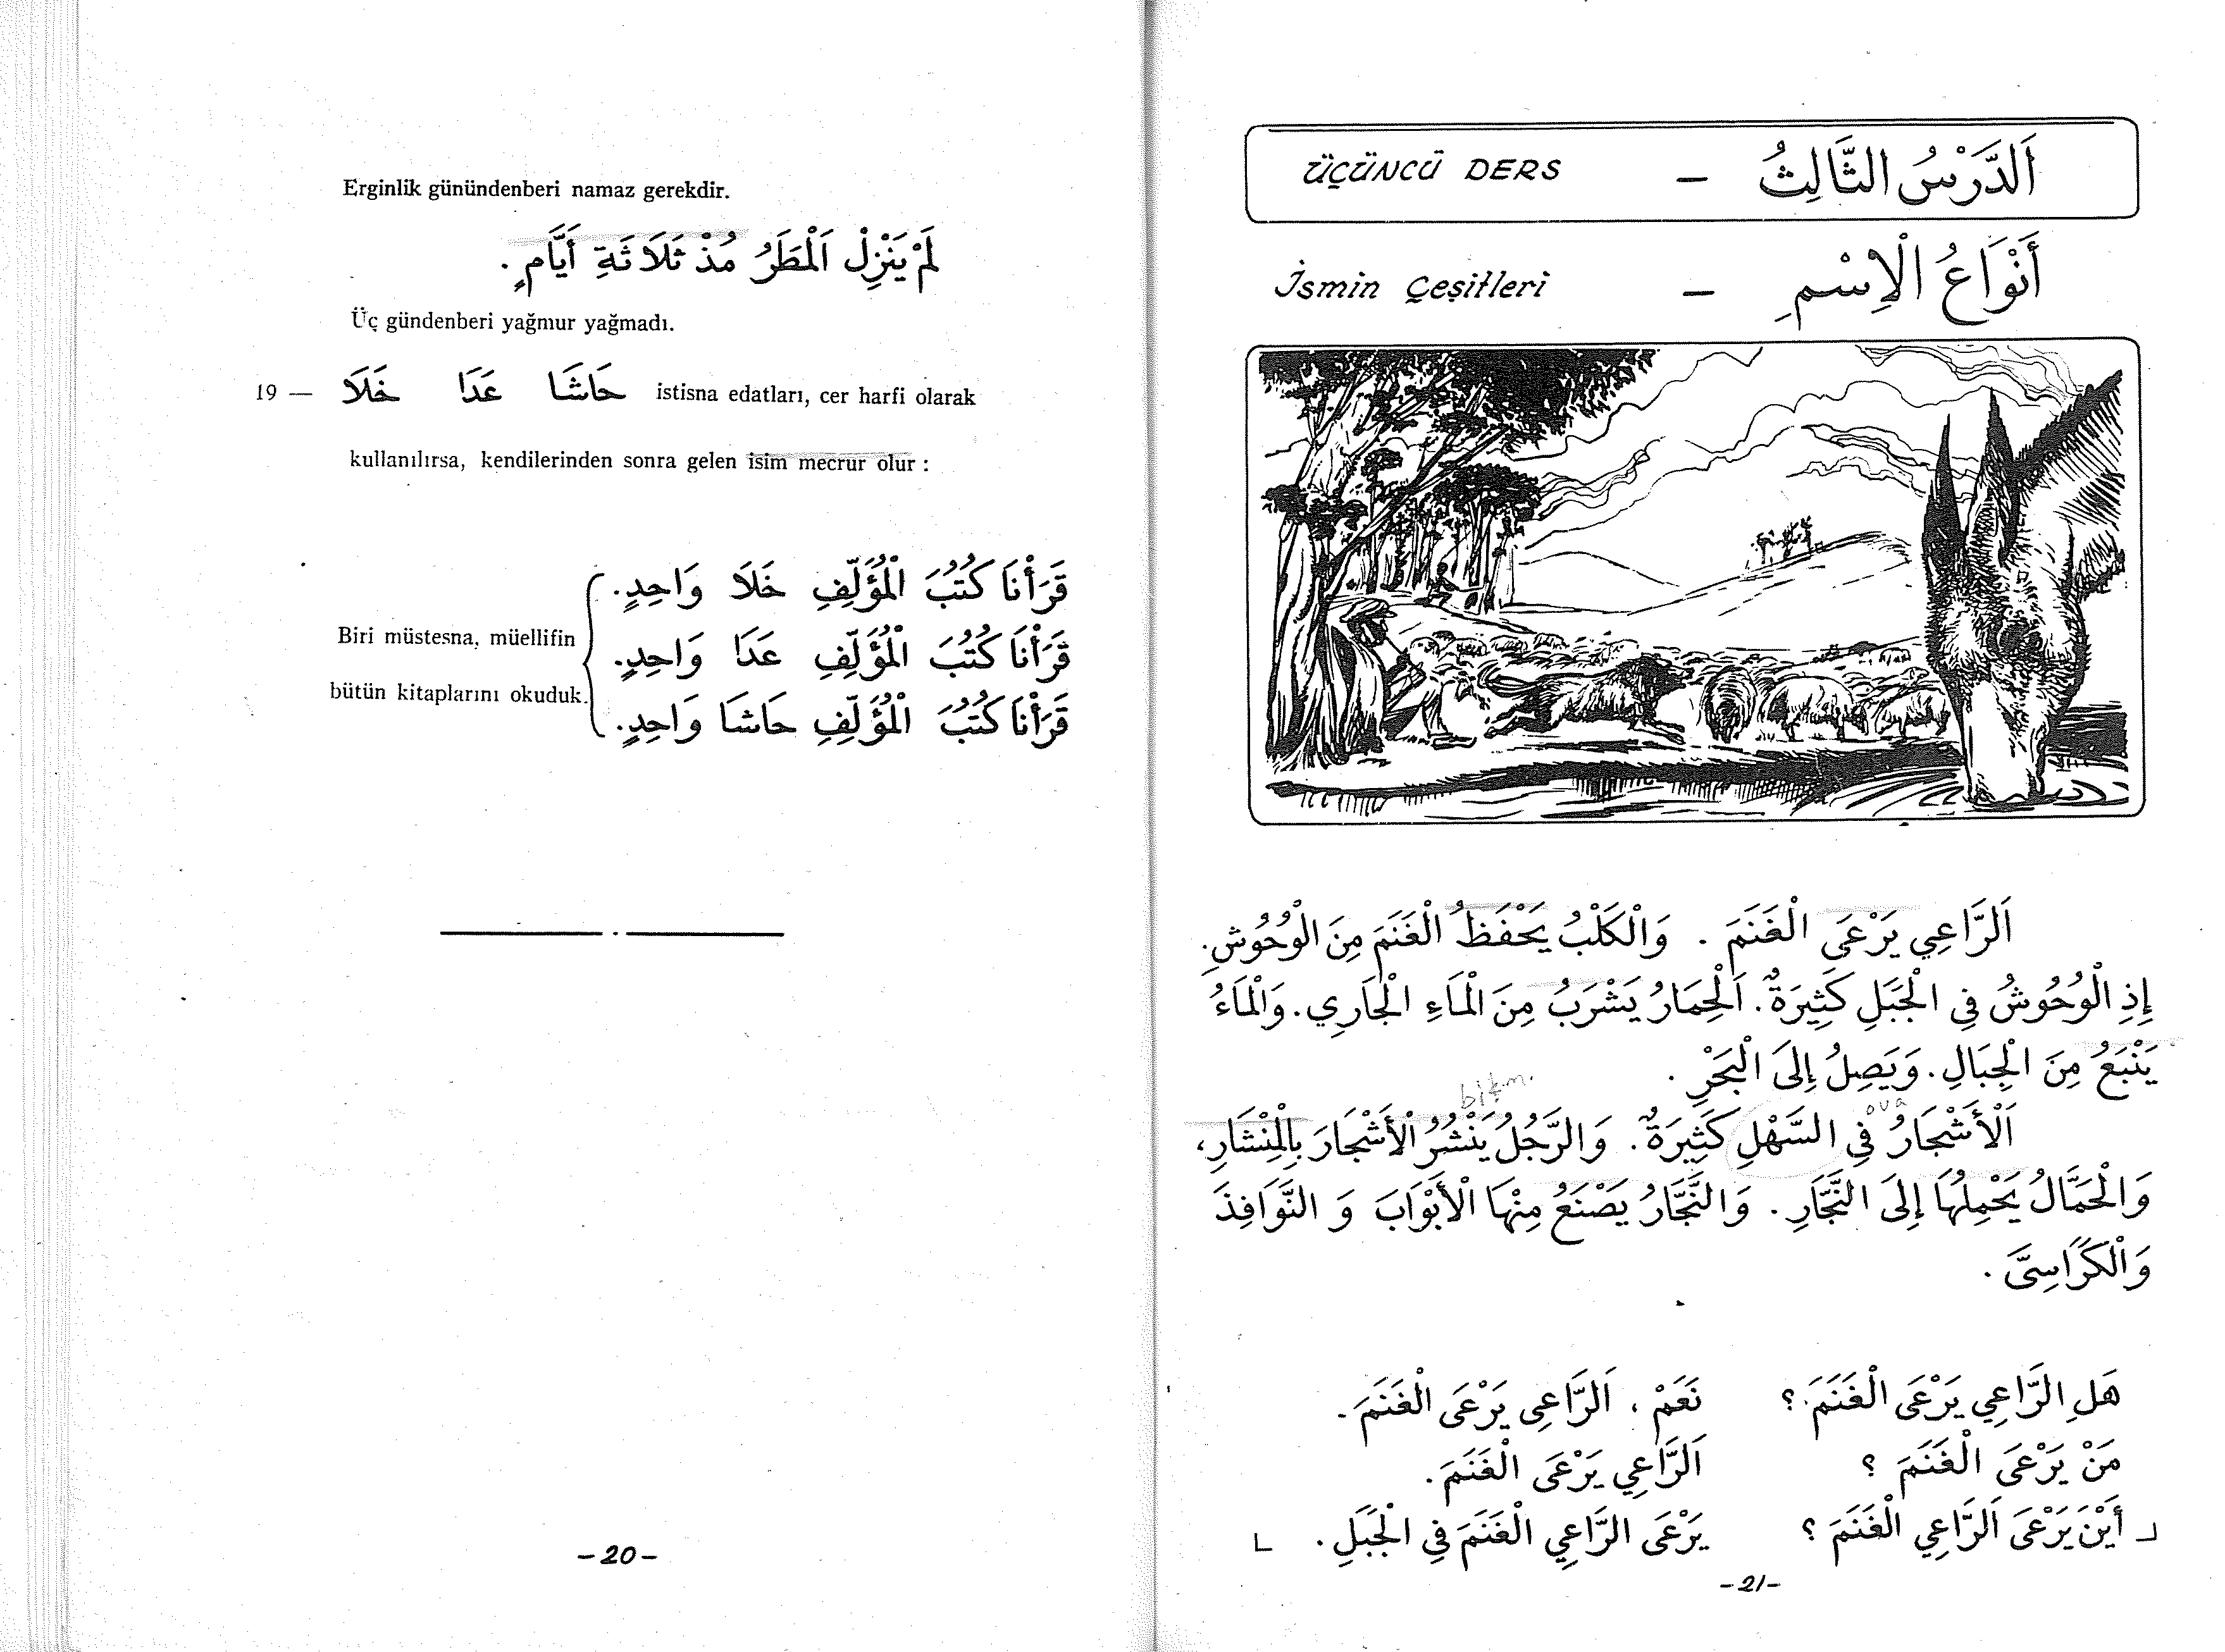 Erginlik günündenberi namaz gerekdir.
لَمْ يَنْزِلْ اَلْمَطَرُ مُذْ ثَلَاثَةِ أَيَّامٍ .
Üç gündenberi yağmur yağmadı.
19 — خَلَا عَدَا حَاشَا istisna edatları, cer harfi olarak
kullanılırsa, kendilerinden sonra gelen isim mecrur olur :
قَرَأْنَا كُتُبَ الْمُؤَلِّفِ خَلَا وَاحِدٍ.
Biri müstesna, müellifin
قَرَأْنَا كُتُبَ الْمُؤَلِّفِ عَدَا وَاحِدٍ.
bütün kitaplarını okuduk.
قَرَأْنَا كُتُبَ الْمُؤَلِّفِ حَاشَا وَاحِدٍ.
-20-
ÜÇÜNCÜ DERS – اَلدَّرْسُ الثَّالِثُ
İsmin Çeşitleri – أَنْوَاعُ الْاِسْمِ
اَلرَّاعِي يَرْعَى الْغَنَمَ . وَالْكَلْبُ يَحْفَظُ الْغَنَمَ مِنَ الْوُحُوشِ.
إِذِ الْوُحُوشُ فِي الْجَبَلِ كَثِيرَةٌ. اَلْحِمَارُ يَشْرَبُ مِنَ الْمَاءِ الْجَارِي. وَالْمَاءُ
يَنْبَعُ مِنَ الْجِبَالِ. وَيَصِلُ إِلَى الْبَحْرِ .
ova
اَلْأَشْجَارُ فِي السَّهْلِ كَثِيرَةٌ. وَالرَّجُلُ يَنْشُرُ الْأَشْجَارَ بِالْمِنْشَارِ،
وَالْحَمَّالُ يَحْمِلُهَا إِلَى النَّجَّارِ . وَالنَّجَّارُ يَصْنَعُ مِنْهَا الْأَبْوَابَ وَ النَّوَافِذَ
وَالْكَرَاسِيَّ .
هَلِ الرَّاعِي يَرْعَى الْغَنَمَ ؟ نَعَمْ ، اَلرَّاعِي يَرْعَى الْغَنَمَ .
مَنْ يَرْعَى الْغَنَمَ ؟ اَلرَّاعِي يَرْعَى الْغَنَمَ .
أَيْنَ يَرْعَى اَلرَّاعِي الْغَنَمَ ؟ يَرْعَى الرَّاعِي الْغَنَمَ فِي الْجَبَلِ .
-21-